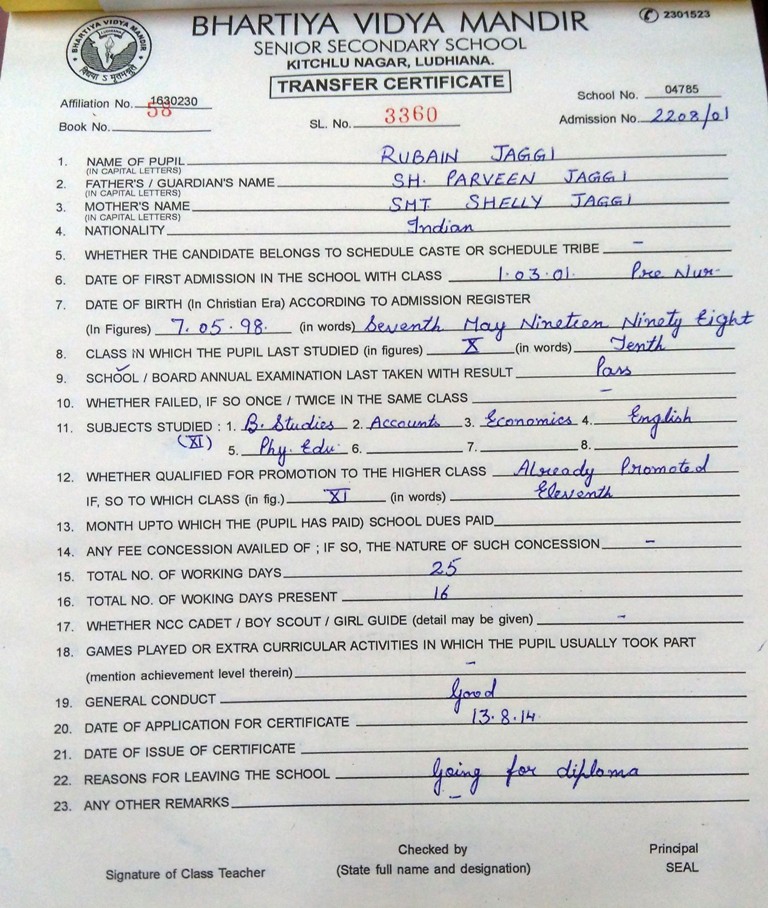 BHARTIYA VIDYA MANDIR
✆ 2301523
BHARTIYA VIDYA MANDIR
LUDHIANA
SENIOR SECONDARY SCHOOL
KITCHLU NAGAR, LUDHIANA.
TRANSFER CERTIFICATE
Affiliation No. 1630230 School No. 04785
Book No. 58 SL. No. 3360 Admission No. 2208/01
1. NAME OF PUPIL RUBAIN JAGGI
(IN CAPITAL LETTERS)
2. FATHER'S / GUARDIAN'S NAME SH. PARVEEN JAGGI
(IN CAPITAL LETTERS)
3. MOTHER'S NAME SMT SHELLY JAGGI
(IN CAPITAL LETTERS)
4. NATIONALITY Indian
5. WHETHER THE CANDIDATE BELONGS TO SCHEDULE CASTE OR SCHEDULE TRIBE –
6. DATE OF FIRST ADMISSION IN THE SCHOOL WITH CLASS 1.03.01. Pre Nur-
7. DATE OF BIRTH (In Christian Era) ACCORDING TO ADMISSION REGISTER
(In Figures) 7.05.98. (in words) Seventh May Nineteen Ninety Eight
8. CLASS IN WHICH THE PUPIL LAST STUDIED (in figures) X (in words) Tenth
9. SCHOOL / BOARD ANNUAL EXAMINATION LAST TAKEN WITH RESULT Pass
10. WHETHER FAILED, IF SO ONCE / TWICE IN THE SAME CLASS –
11. SUBJECTS STUDIED : 1. B. Studies 2. Accounts 3. Economics 4. English
(XI) 5. Phy. Edu. 6. 7. 8.
12. WHETHER QUALIFIED FOR PROMOTION TO THE HIGHER CLASS Already Promoted
IF, SO TO WHICH CLASS (in fig.) XI (in words) Eleventh
13. MONTH UPTO WHICH THE (PUPIL HAS PAID) SCHOOL DUES PAID
14. ANY FEE CONCESSION AVAILED OF ; IF SO, THE NATURE OF SUCH CONCESSION –
15. TOTAL NO. OF WORKING DAYS 25
16. TOTAL NO. OF WOKING DAYS PRESENT 16
17. WHETHER NCC CADET / BOY SCOUT / GIRL GUIDE (detail may be given) –
18. GAMES PLAYED OR EXTRA CURRICULAR ACTIVITIES IN WHICH THE PUPIL USUALLY TOOK PART
(mention achievement level therein) –
19. GENERAL CONDUCT Good
20. DATE OF APPLICATION FOR CERTIFICATE 13.8.14.
21. DATE OF ISSUE OF CERTIFICATE
22. REASONS FOR LEAVING THE SCHOOL Going for diploma
23. ANY OTHER REMARKS –
Signature of Class Teacher
Checked by
(State full name and designation)
Principal
SEAL